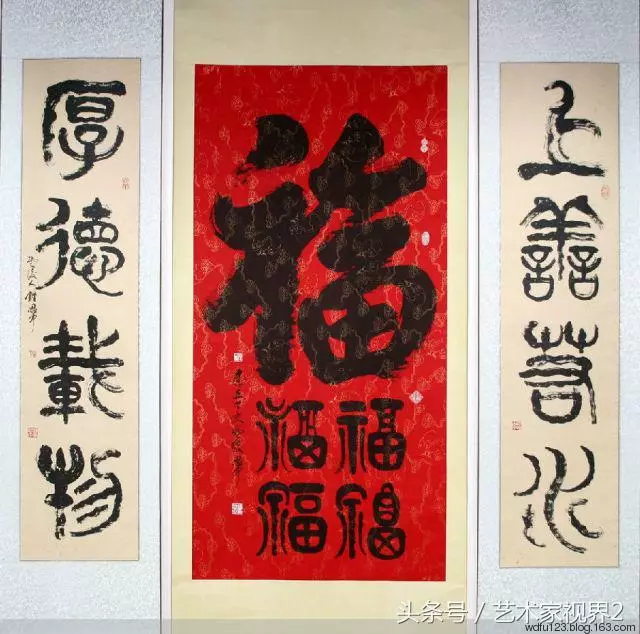 上善若水
福
福福
福福
厚德載物
头条号 / 艺术家视界2
wdfu123.blog.163.com